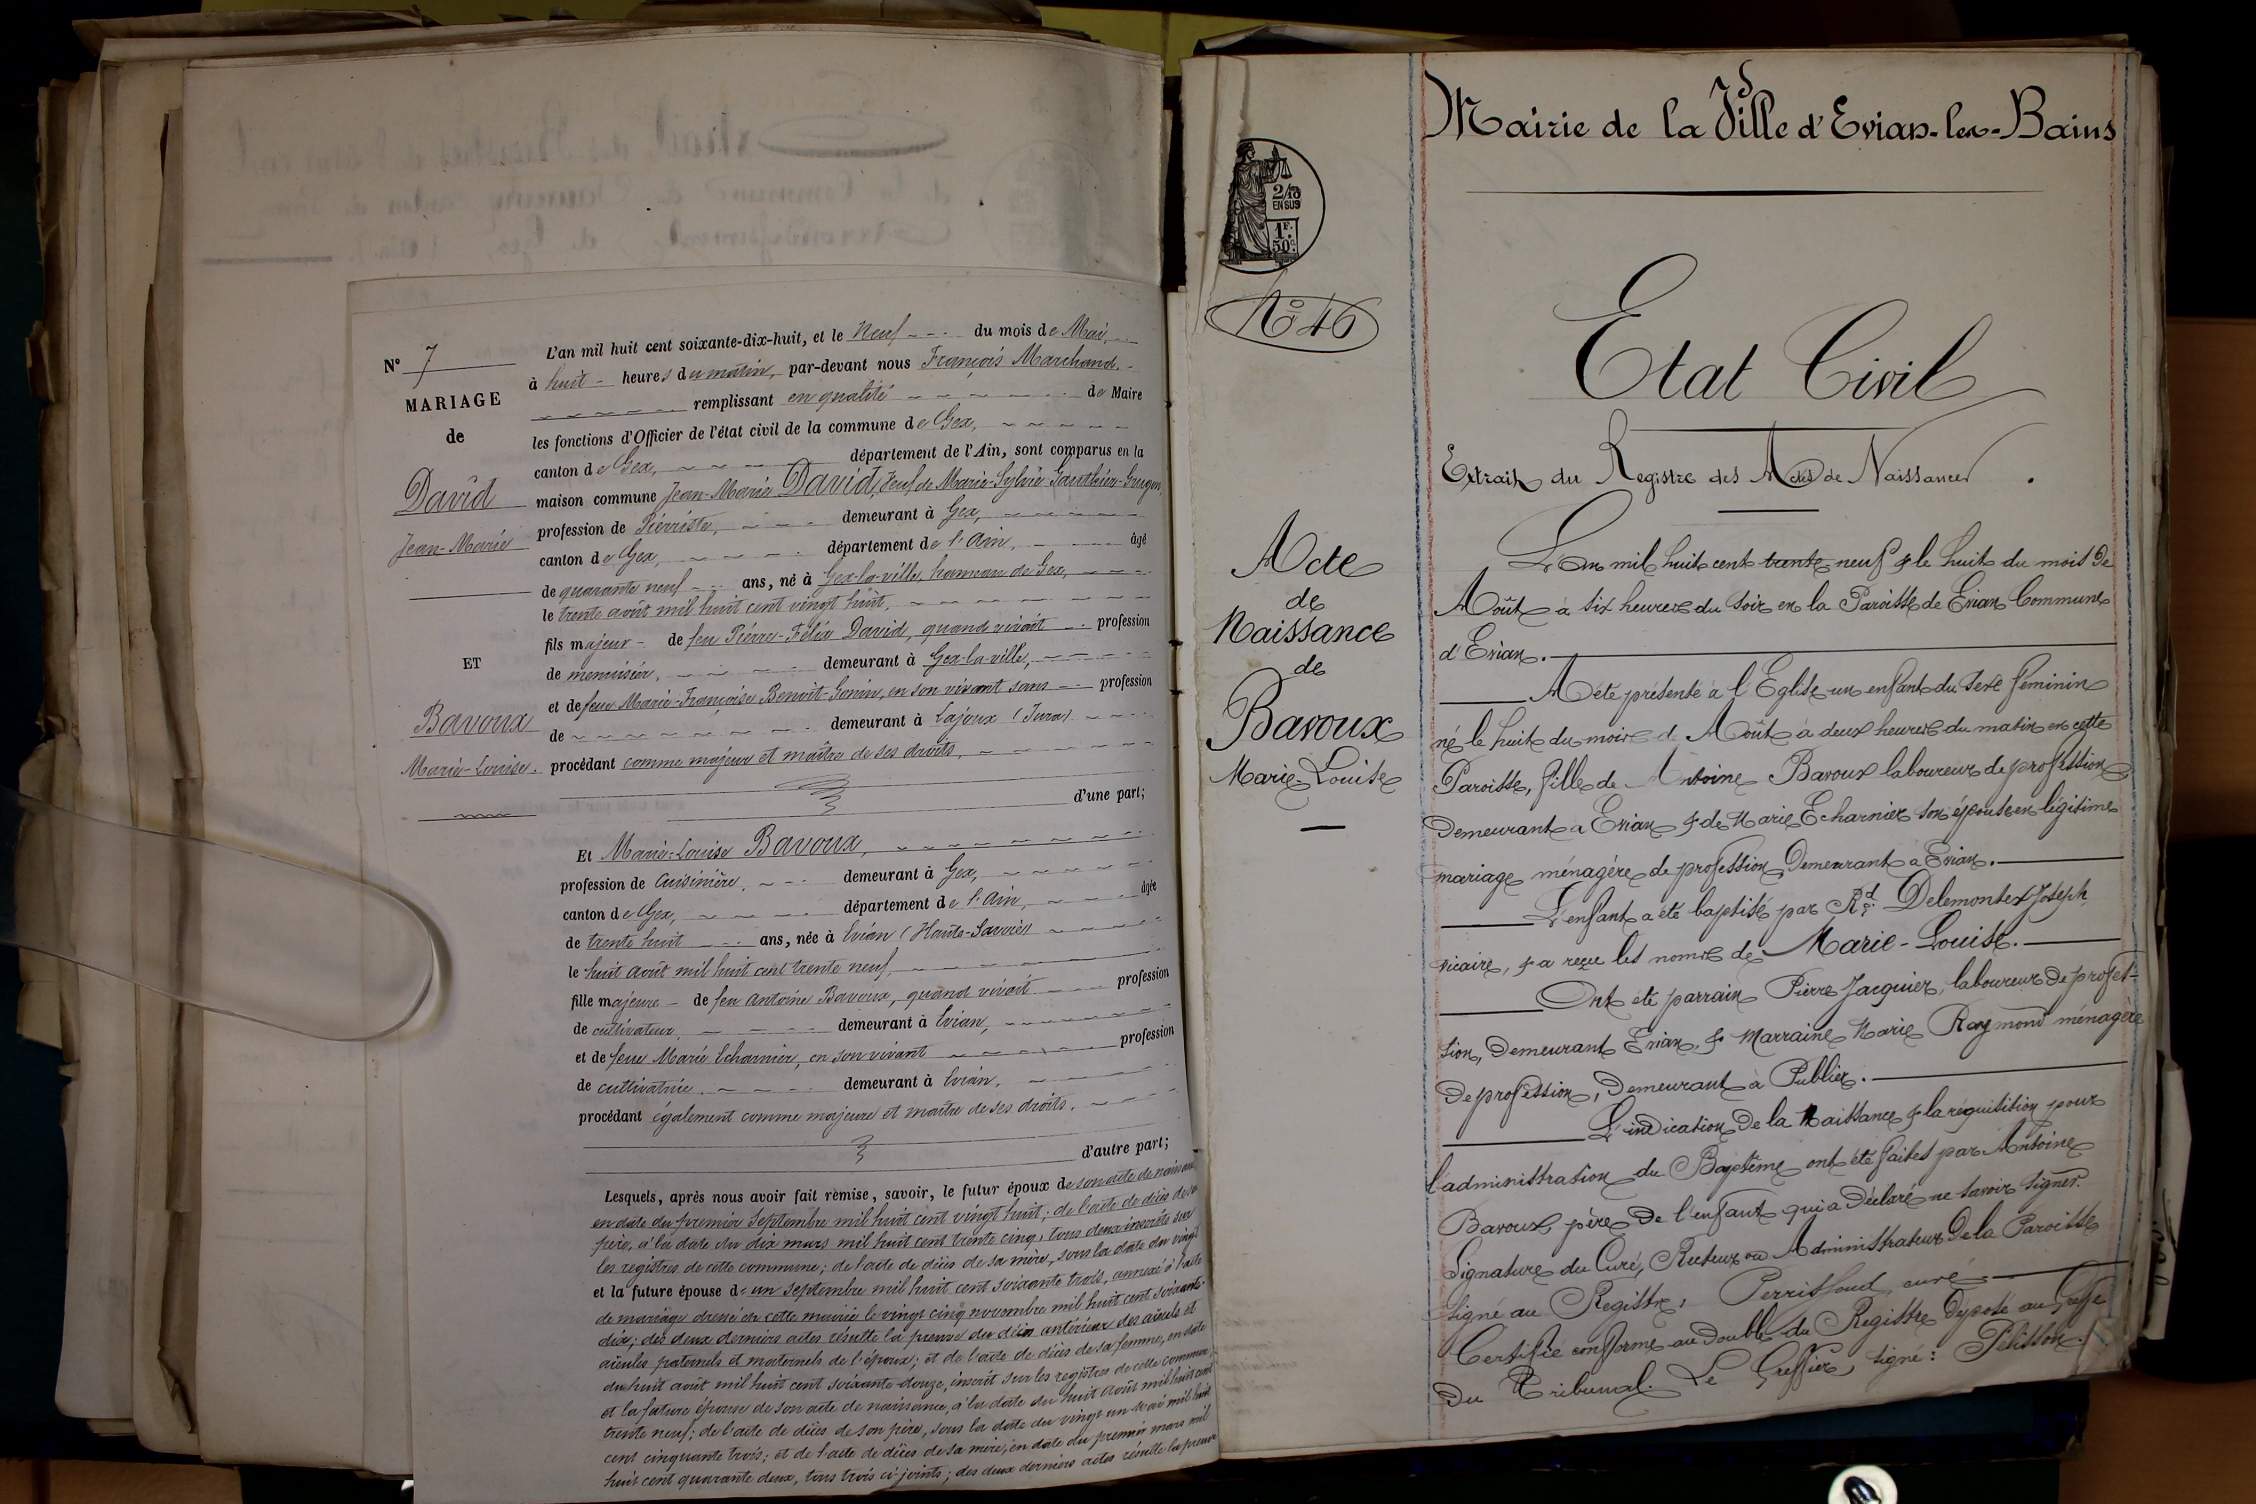 N° 7
MARIAGE
de
David
Jean-Marie
ET
Bavoux
Marie-Louise.
L'an mil huit cent soixante-dix-huit, et le Neuf du mois de Mai,
à huit heures du matin, par-devant nous François Marchand
remplissant en qualité de Maire
les fonctions d'Officier de l'état civil de la commune de Gex,
canton de Gex, département de l'Ain, sont comparus en la
maison commune Jean-Marie David, veuf de Marie-Sylvie Gauthier-Gregon,
profession de Pierriste, demeurant à Gex,
canton de Gex, département de l'Ain, âgé
de quarante neuf ans, né à Gex-la-ville, hameau de Gex,
le trente août mil huit cent vingt huit,
fils majeur de feu Pierre-Félix David, quand vivait profession
de menuisier, demeurant à Gex-la-ville,
et de feue Marie-Françoise Benoit-Gonin, en son vivant sans profession
de demeurant à Lajoux (Jura)
procédant comme majeur et maître de ses droits,
d'une part;
Et Marie-Louise Bavoux,
profession de Cuisinière, demeurant à Gex,
canton de Gex, département de l'Ain, âgée
de trente huit ans, née à Evian (Haute-Savoie)
le huit août mil huit cent trente neuf,
fille majeure de feu Antoine Bavoux, quand vivait profession
de cultivateur, demeurant à Evian,
et de feue Marie Echarnier, en son vivant profession
de cultivatrice, demeurant à Evian,
procédant également comme majeure et maître de ses droits.
d'autre part;
Lesquels, après nous avoir fait remise, savoir, le futur époux de son acte de naissance
en date du premier Septembre mil huit cent vingt huit; de l'acte de décès de son
père, à la date du dix mars mil huit cent trente cinq, tous deux inscrits sur
les registres de cette commune; de l'acte de décès de sa mère, sous la date du vingt
et la future épouse d un septembre mil huit cent soixante trois, annexé à l'acte
de mariage dressé en cette mairie le vingt cinq novembre mil huit cent soixante-
dix; des deux derniers actes résulte la preuve du décès antérieur des aïeuls et
aïeules paternels et maternels de l'époux; et de l'acte de décès de sa femme, en date
du huit août mil huit cent soixante douze, inscrit sur les registres de cette commune
et la future épouse de son acte de naissance, à la date du huit août mil huit cent
trente neuf; de l'acte de décès de son père, sous la date du vingt un mai mil huit
cent cinquante trois; et de l'acte de décès de sa mère, en date du premier mars mil
huit cent quarante deux, tous trois ci-joints; des deux derniers actes résulte la preuve
2/10
EN SUS
1F.
50c.
N° 46
Acte
de
Naissance
de
Bavoux
Marie-Louise
Mairie de la Ville d'Evian-les-Bains
Etat Civil
Extrait du Registre des Actes de Naissances.
L'an mil huit cent trente neuf & le huit du mois de
Août à six heures du soir en la Paroisse de Evian Commune
d'Evian.
A été présenté à l'Eglise un enfant du sexe féminin
né le huit du mois d Août à deux heures du matin en cette
Paroisse, fille de Antoine Bavoux laboureur de profession
Demeurant a Evian & de Marie Echarnier son épouse en légitime
mariage ménagère de profession Demeurant a Evian.
L'enfant a été baptisé par Rd Delemontex Joseph
vicaire, & a reçu les noms de Marie-Louise.
Ont été parrain Pierre Jacquier, laboureur de profes-
sion, Demeurant Evian, & Marraine Marie Raymond ménagère
de profession, Demeurant à Publier.
L'indication de la Naissance & la réquisition pour
l'administration du Baptême ont été faites par Antoine
Bavoux, père De l'enfant qui a Déclaré ne savoir signer.
Signature du Curé, Recteur ou Administrateur De la Paroisse
signé au Registre, Perrissoud, curé
Certifié conforme au Double du Registre Déposé au Greffe
Du Tribunal. Le Greffier, signé: Pelisson.